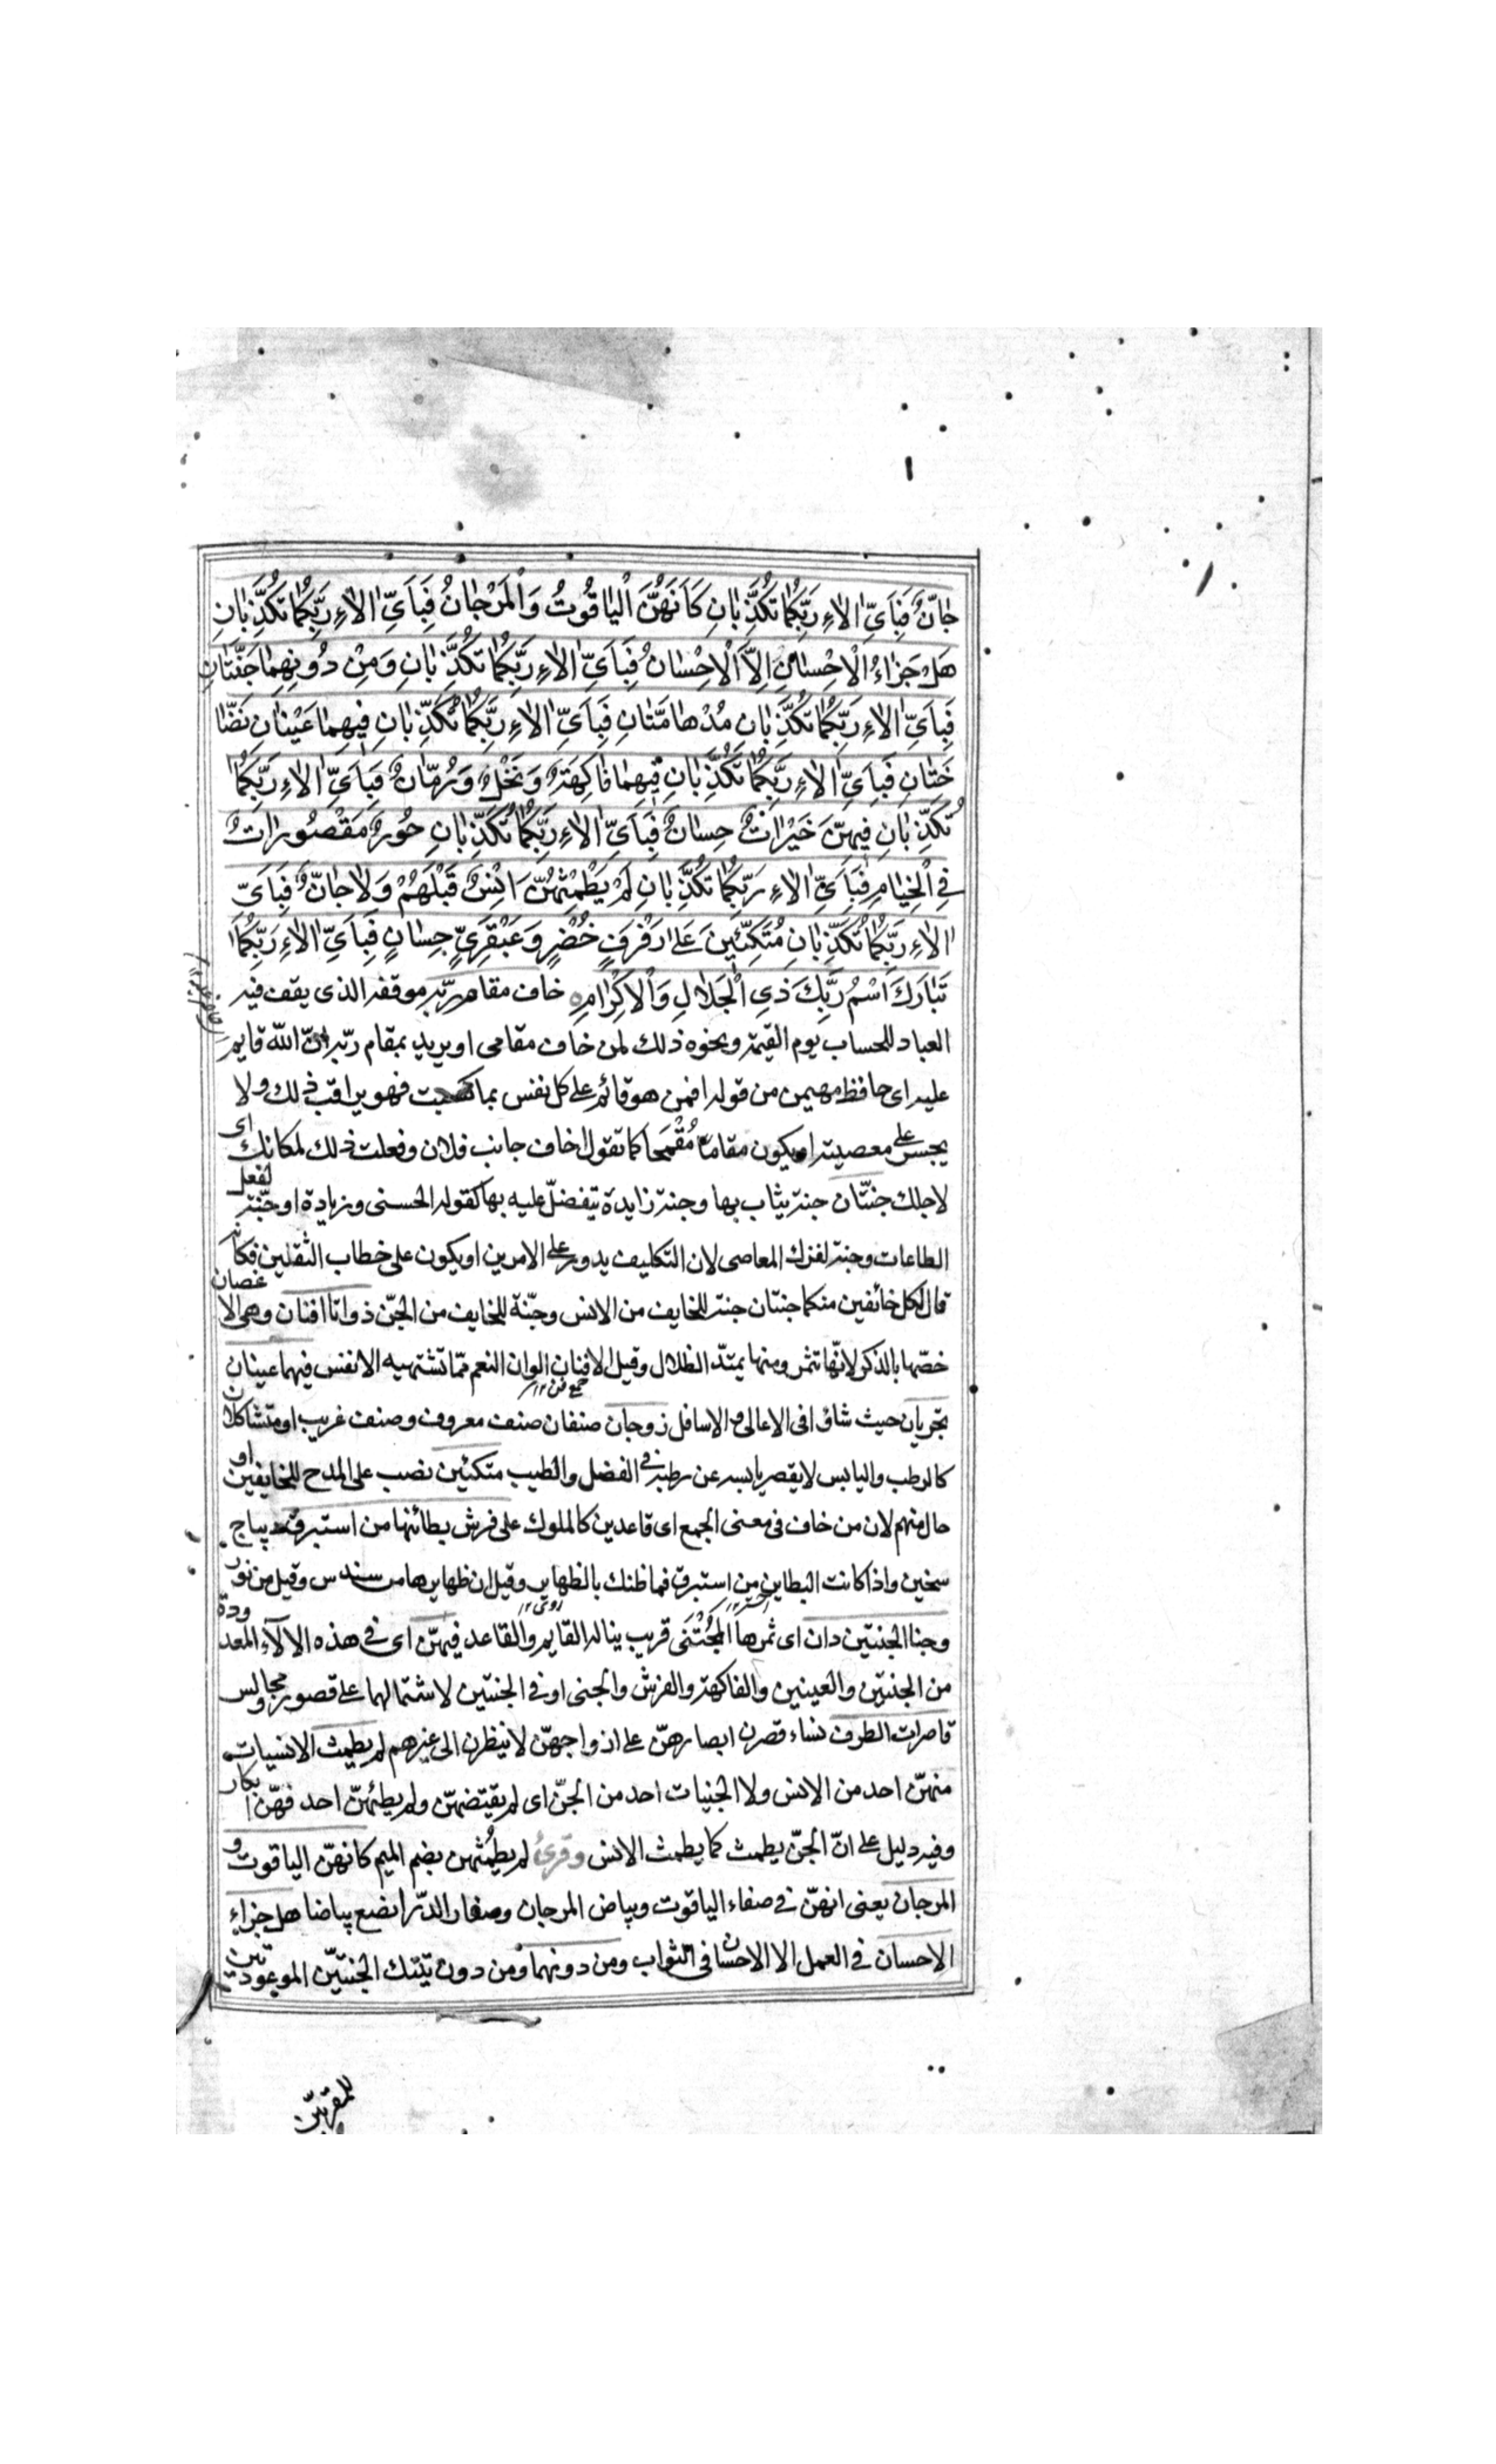 جَانٌّ فَبِاَيِّ اٰلاٰءِ رَبِّكُمٰا تُكَذِّبٰانِ كَاَنَّهُنَّ الْيٰاقُوتُ وَالْمَرْجٰانُ فَبِاَيِّ اٰلاٰءِ رَبِّكُمٰا تُكَذِّبٰانِ
هَلْ جَزٰاءُ الْاِحْسٰانِ اِلاَّ الْاِحْسٰانُ فَبِاَيِّ اٰلاٰءِ رَبِّكُمٰا تُكَذِّبٰانِ وَمِنْ دُونِهِمٰا جَنَّتٰانِ
فَبِاَيِّ اٰلاٰءِ رَبِّكُمٰا تُكَذِّبٰانِ مُدْهٰامَّتٰانِ فَبِاَيِّ اٰلاٰءِ رَبِّكُمٰا تُكَذِّبٰانِ فِيهِمٰا عَيْنٰانِ نَضّٰا
خَتٰانِ فَبِاَيِّ اٰلاٰءِ رَبِّكُمٰا تُكَذِّبٰانِ فِيهِمٰا فٰاكِهَةٌ وَنَخْلٌ وَرُمّٰانٌ فَبِاَيِّ اٰلاٰءِ رَبِّكُمٰا
تُكَذِّبٰانِ فِيهِنَّ خَيْرٰاتٌ حِسٰانٌ فَبِاَيِّ اٰلاٰءِ رَبِّكُمٰا تُكَذِّبٰانِ حُورٌ مَقْصُورٰاتٌ
فِي الْخِيٰامِ فَبِاَيِّ اٰلاٰءِ رَبِّكُمٰا تُكَذِّبٰانِ لَمْ يَطْمِثْهُنَّ اِنْسٌ قَبْلَهُمْ وَلاٰ جٰانٌّ فَبِاَيِّ
اٰلاٰءِ رَبِّكُمٰا تُكَذِّبٰانِ مُتَّكِئِينَ عَلىٰ رَفْرَفٍ خُضْرٍ وَعَبْقَرِيٍّ حِسٰانٍ فَبِاَيِّ اٰلاٰءِ رَبِّكُمٰا
تَبٰارَكَ اسْمُ رَبِّكَ ذِي الْجَلاٰلِ وَالْاِكْرٰامِ خاف مقام ربّه موقفه الذى يقف فيه
العباد للحساب يوم القيمة ونحوه ذلك لمن خاف مقامى او يريد بمقام ربّه انّ الله قايم
عليه اى حافظ مهيمن من قوله افمن هو قائم على كل نفس بما كسبت فهو يراقب ذلك ولا
يجسر على معصيته او يكون مقاما مُقْحَما كما تقول اخاف جانب فلان وفعلت ذلك لمكانك اى
لاجلك جنّتان جنة يثاب بها وجنة زايدة يتفضلّ عليه بها كقوله الحسنى وزيادة او جنّة لفعل
الطاعات وجنة لترك المعاصى لان التكليف يدور على الامرين او يكون على خطاب الثقلين فكانه
قال لكل خائفين منكما جنتان جنة للخايف من الانس وجنّة للخايف من الجنّ ذواتا افنان وهى الاغصان
خصّها بالذكر لانّها تثمر ومنها يمتدّ الظلال وقيل الافنان الوان النعم ممّا تشتهيه الانفس فيهما عينان
جمع فن ١٢
تجريان حيث شاؤا فى الاعالى والاسافل زوجان صنفان صنف معروف وصنف غريب او متشاكلان
كالرطب واليابس لا يقصر يابسه عن رطبه فى الفضل والطيب متكئين نصب على المدح للخايفين او
حال منهم لان من خاف فى معنى الجمع اى قاعدين كالملوك على فرش بطائنها من استبرق ديباج
سخين واذا كانت البطاين من استبرق فما ظنك بالظهاير وقيل ان ظهايرها من سندس وقيل من نور
وجنا الجنتين دان اى ثمرها المُجْتَنَى قريب يناله القايم والقاعد فيهنّ اى فى هذه الالآء المعدودة
من الجنتين والعينين والفاكهة والفرش والجنى او فى الجنتين لاشتمالهما على قصور ومجالس
قاصرات الطرف نساء قصرن ابصارهنّ على ازواجهنّ لا ينظرن الى غيرهم لم يطمث الانسيات
منهنّ احد من الانس ولا الجنيات احد من الجنّ اى لم يقتضهنّ ولم يطئهنّ احد فهنّ ابكار
وفيه دليل على انّ الجنّ يطمث كما يطمث الانس وقرئ لم يطمُثهن بضم الميم كانهنّ الياقوت و
المرجان يعنى انهنّ فى صفاء الياقوت وبياض المرجان وصغار الدّر انصع بياضا هل جزاء
الاحسان فى العمل الا الاحسان فى الثواب ومن دونهما ومن دون تينك الجنتيّن الموعودتين
للمقربين